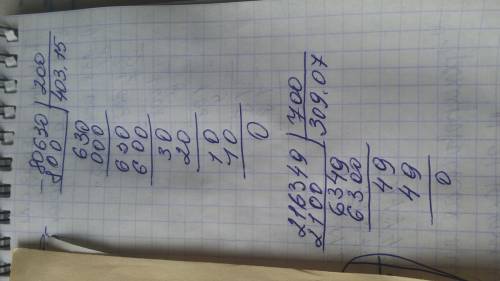 - 80630 | 200
800 | 403.15
630
000
630
600
30
20
10
10
0
216349 | 700
2100 | 309.07
6349
6300
49
49
0